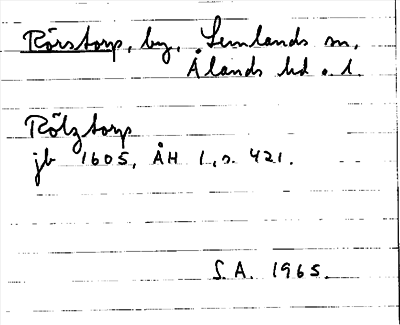 Rörstorp, by, Lemlands sn,
Ålands hd o. l.
Rölztorp
jb 1605, ÅH 1, s. 421.
S.A. 1965.